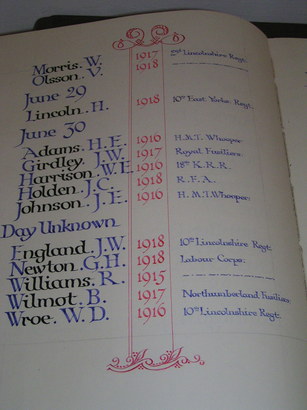 Morris. W. 1917 2nd Lincolnshire Regt.
Olsson. V. 1918
June 29
Lincoln. H. 1918 10th East Yorks Regt.
June 30
Adams. H. E. 1916 H.M.T. Whooper
Girdley. J. W. 1917 Royal Fusiliers
Harrison. W. E. 1916 18th K.R.R.
Holden. J. C. 1918 R.F.A.
Johnson. J. E. 1916 H.M.T. Whooper
Day Unknown
England. J. W. 1918 10th Lincolnshire Regt.
Newton. G. H. 1918 Labour Corps.
Williams. R. 1915
Wilmot. B. 1917 Northumberland Fusiliers
Wroe. W. D. 1916 10th Lincolnshire Regt.